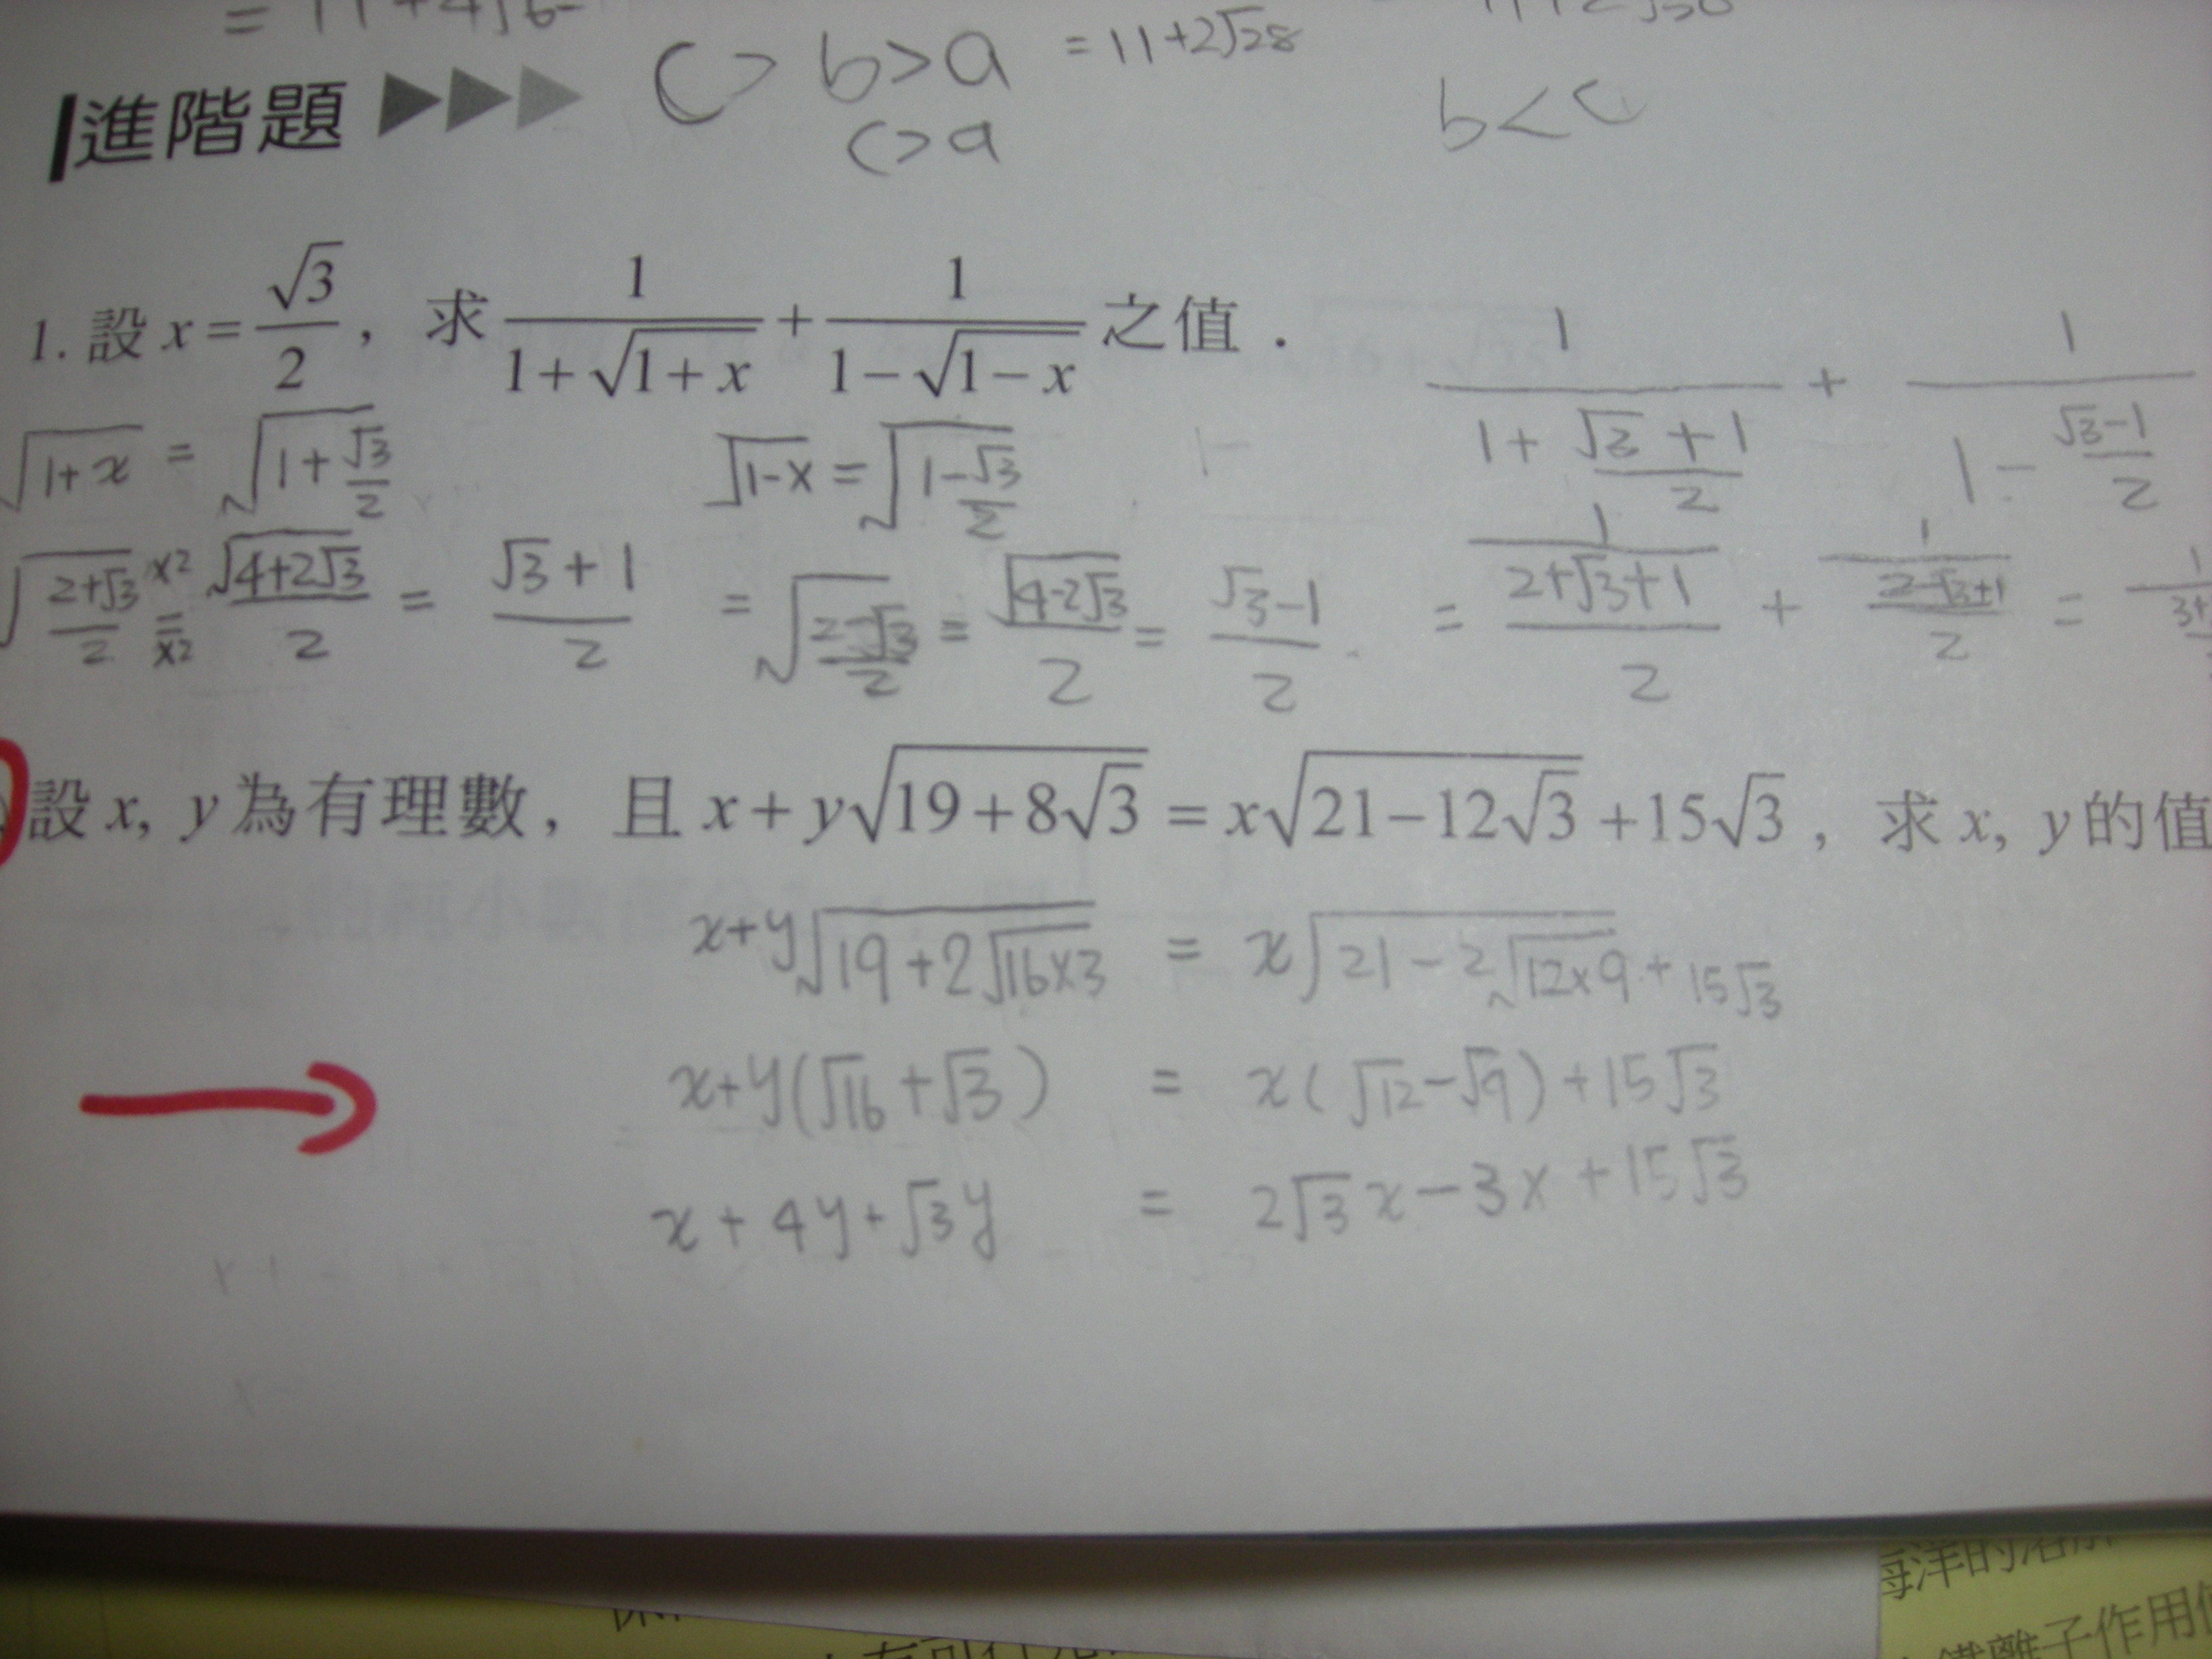 = 11+4√6
進階題 c > b > a = 11+2√28
c > a b < c
1. 設 x = √3/2 , 求 1/(1+√(1+x)) + 1/(1−√(1−x)) 之值 .
√(1+x) = √(1+√3/2) √(1-x) = √(1-√3/2) 1/(1+(√3+1)/2) + 1/(1-(√3-1)/2)
√((2+√3)/2) ×2/×2 = √(4+2√3)/2 = (√3+1)/2 = √((2-√3)/2) = √(4-2√3)/2 = (√3-1)/2 = 1/((2+√3+1)/2) + 1/((2-√3+1)/2) =
設 x, y 為有理數, 且 x + y√(19+8√3) = x√(21−12√3) +15√3 , 求 x, y 的值
x+y√(19+2√(16×3)) = x√(21-2√(12×9)) + 15√3
x+y(√16+√3) = x(√12-√9)+15√3
x+4y+√3y = 2√3x-3x+15√3
海洋的溶
離子作用